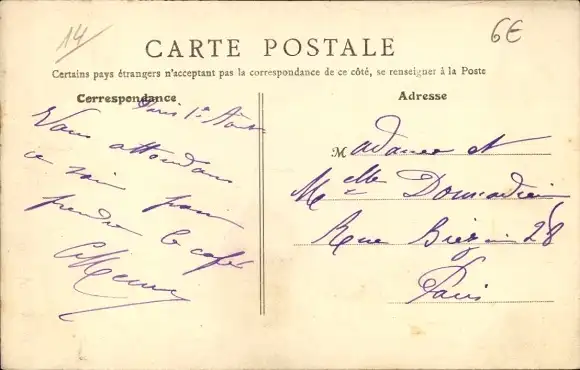 14
6€
CARTE POSTALE
Certains pays étrangers n'acceptant pas la correspondance de ce côté, se renseigner à la Poste
Correspondance
Adresse
Paris 1er Août
Vous attendons
ce soir pour
prendre le café
Madame et
Melle
Rue 28
Paris